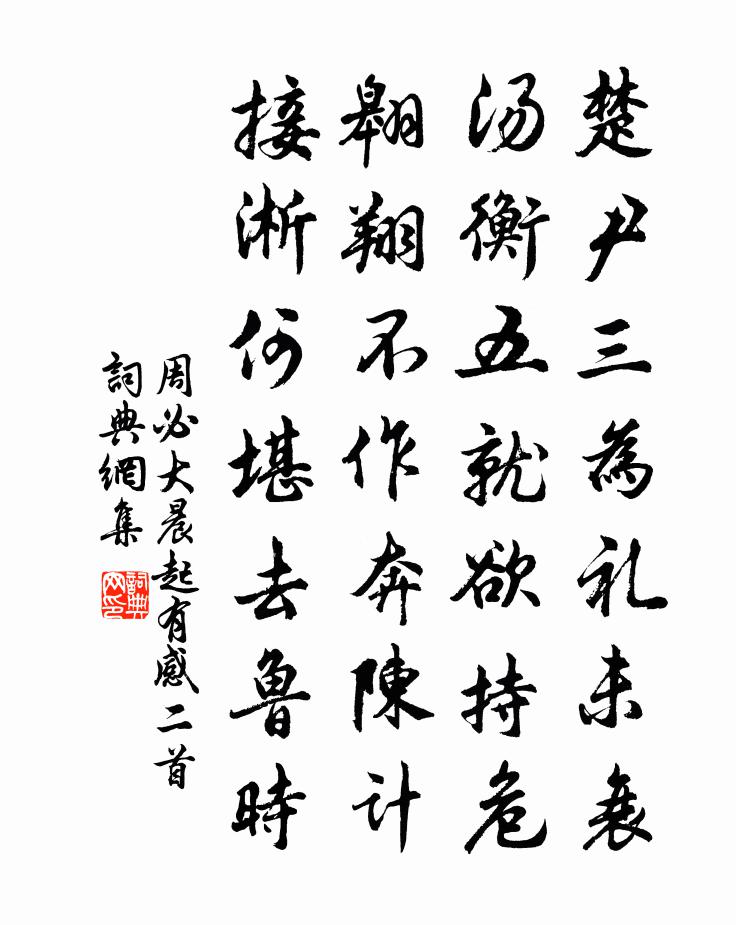 楚尹三為礼未衰
汤衡五就欲持危
翱翔不作奔陳计
接淅何堪去魯時
周必大晨起有感二首
詞典網集
詞典網印